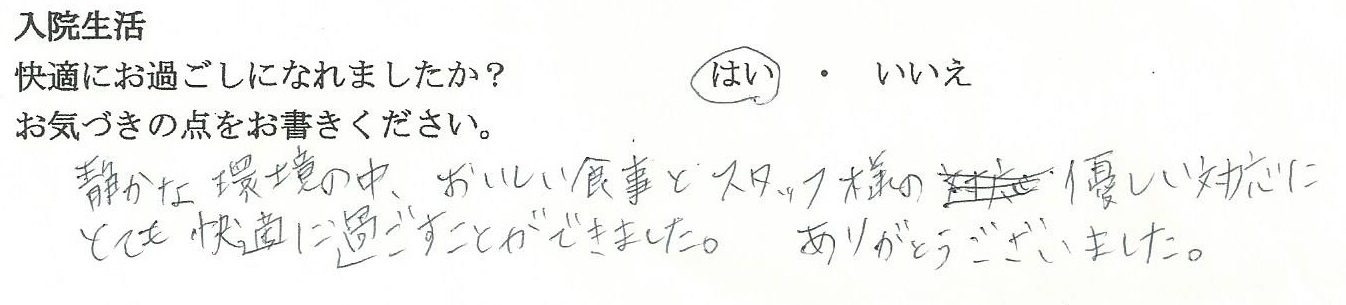 入院生活
快適にお過ごしになれましたか？ はい ・ いいえ
お気づきの点をお書きください。
静かな環境の中、おいしい食事とスタッフ様の優しい対応に
とても快適に過ごすことができました。 ありがとうございました。